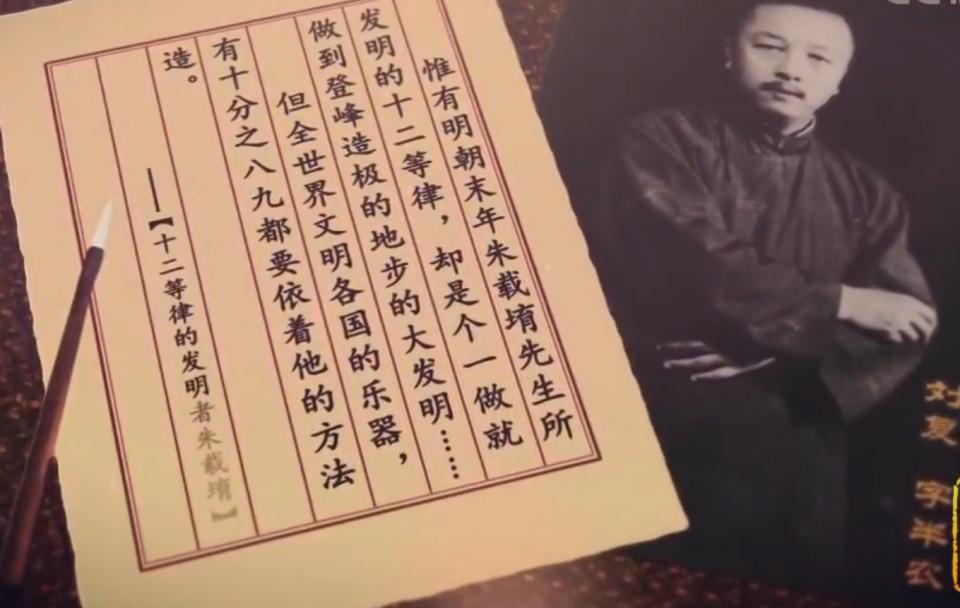 惟有明朝末年朱载堉先生所
发明的十二等律，却是个一做就
做到登峰造极的地步的大发明……
但全世界文明各国的乐器，
有十分之八九都要依着他的方法
造。
——【十二等律的发明者朱载堉】
刘复 字半农